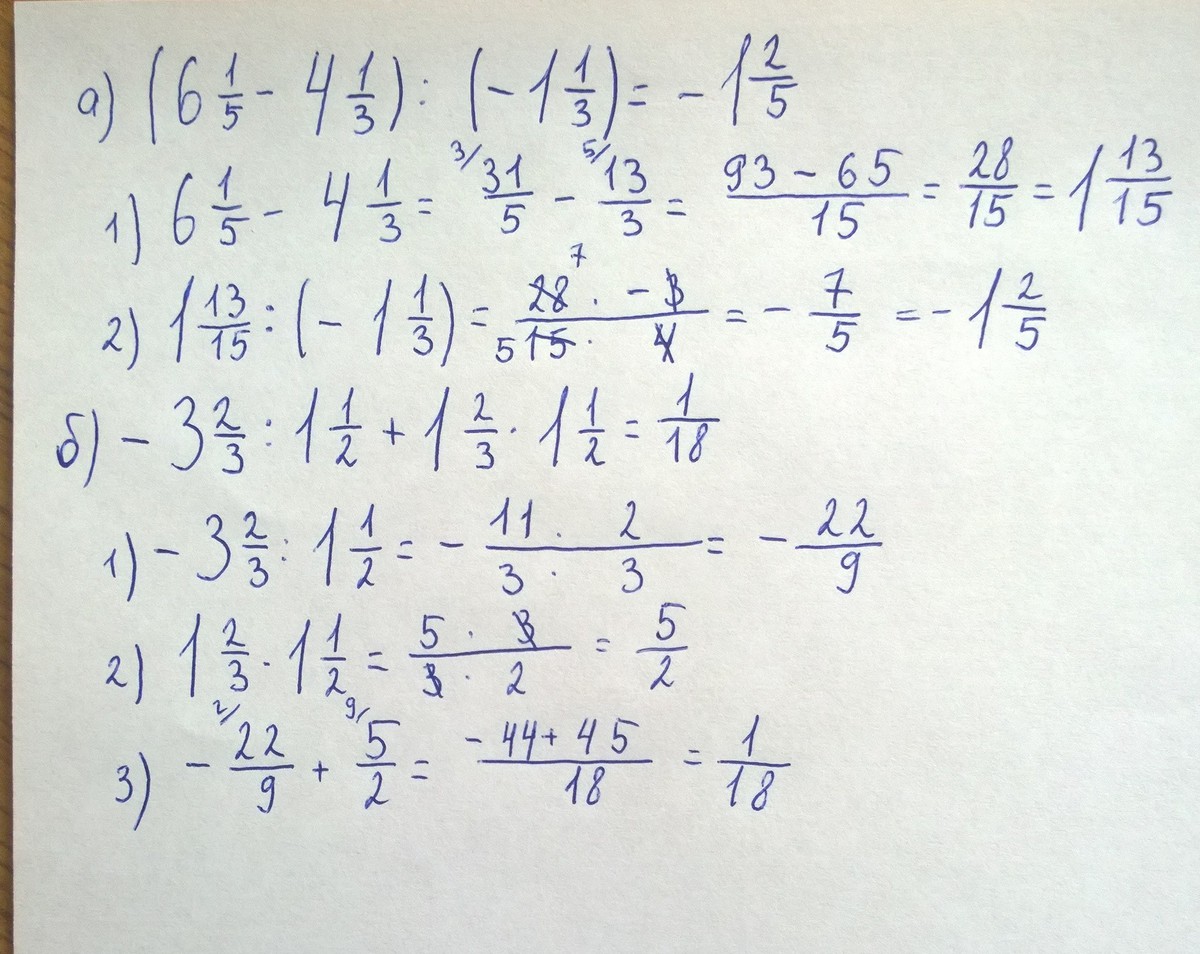 а) (6 1/5 - 4 1/3) : (- 1 1/3) = - 1 2/5
1) 6 1/5 - 4 1/3 = 3/ 31/5 - 5/ 13/3 = (93 - 65)/15 = 28/15 = 1 13/15
2) 1 13/15 : (- 1 1/3) = (28 7 · - 3)/(5 15 · 4) = - 7/5 = - 1 2/5
б) - 3 2/3 : 1 1/2 + 1 2/3 · 1 1/2 = 1/18
1) - 3 2/3 : 1 1/2 = - (11 · 2)/(3 · 3) = - 22/9
2) 1 2/3 · 1 1/2 = (5 · 3)/(3 · 2) = 5/2
3) - 2/ 22/9 + 9/ 5/2 = (- 44 + 45)/18 = 1/18